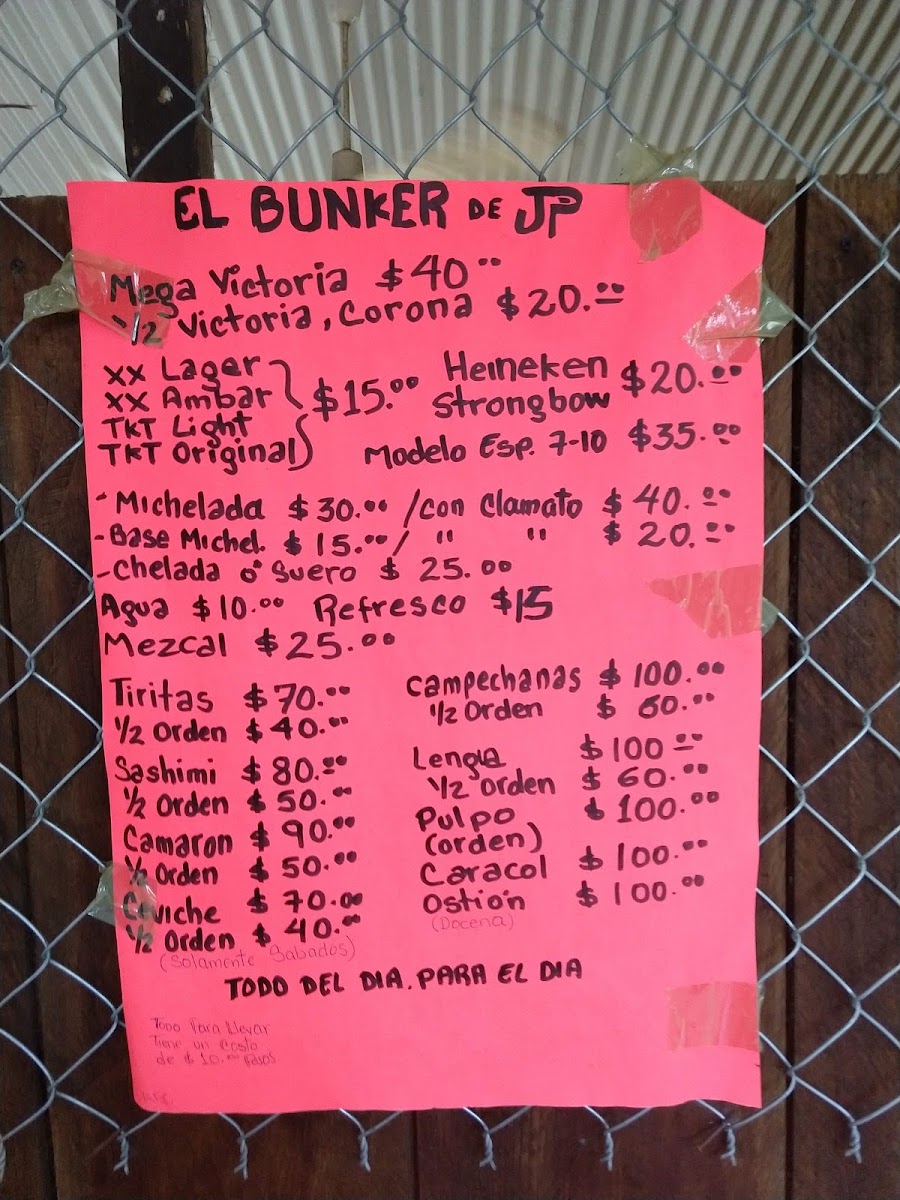 EL BUNKER DE JP
Mega Victoria $40.00
1/2 Victoria, Corona $20.00
XX Lager
XX Ambar
TKT Light
TKT Original
$15.00
Heineken
Strongbow
$20.00
Modelo Esp. 7-10 $35.00
- Michelada $30.00 /con Clamato $40.00
- Base Michel. $15.00 / " " $20.00
- Chelada ó Suero $25.00
Agua $10.00 Refresco $15
Mezcal $25.00
Tiritas $70.00
1/2 Orden $40.00
Sashimi $80.00
1/2 Orden $50.00
Camaron $90.00
1/2 Orden $50.00
Ceviche $70.00
1/2 Orden $40.00
(Solamente Sabados)
Campechanas $100.00
1/2 Orden $60.00
Lengua $100.00
1/2 Orden $60.00
Pulpo $100.00
(orden)
Caracol $100.00
Ostión $100.00
(Docena)
TODO DEL DIA. PARA EL DIA
Todo Para llevar
Tiene un Costo
de $10.00 Pesos